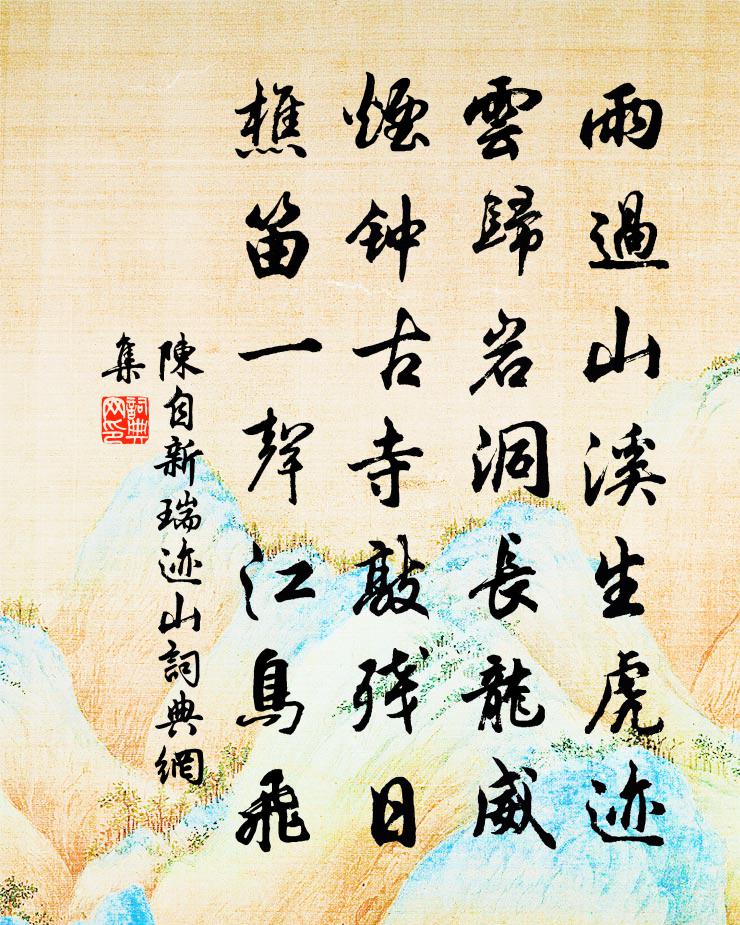 雨過山溪生虎迹
雲歸岩洞長龍威
煙钟古寺敲残日
樵笛一聲江鳥飛
陳自新瑞迹山詞典網
集
詞典
网印